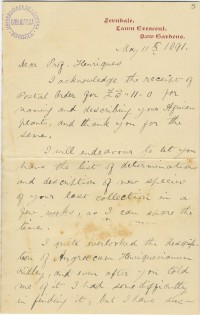 5
Ferndale,
Lawn Crescent,
Kew Gardens.
May 11th 1891.
Dear Prof. Henriques
I acknowledge the receipt of
Postal Order for £3-11-0 for
naming and describing your African
plants, and thank you for the
same.
I will endeavour to let you
have the list of determinations
and description of new species
of your last collection in a
few weeks, as I can spare the
time.
I quite overlooked the descrip-
tion of Angraecum Henriquesianum
Ridley, and even after you told
me of it I had some difficulty
in finding it, but I have dis-